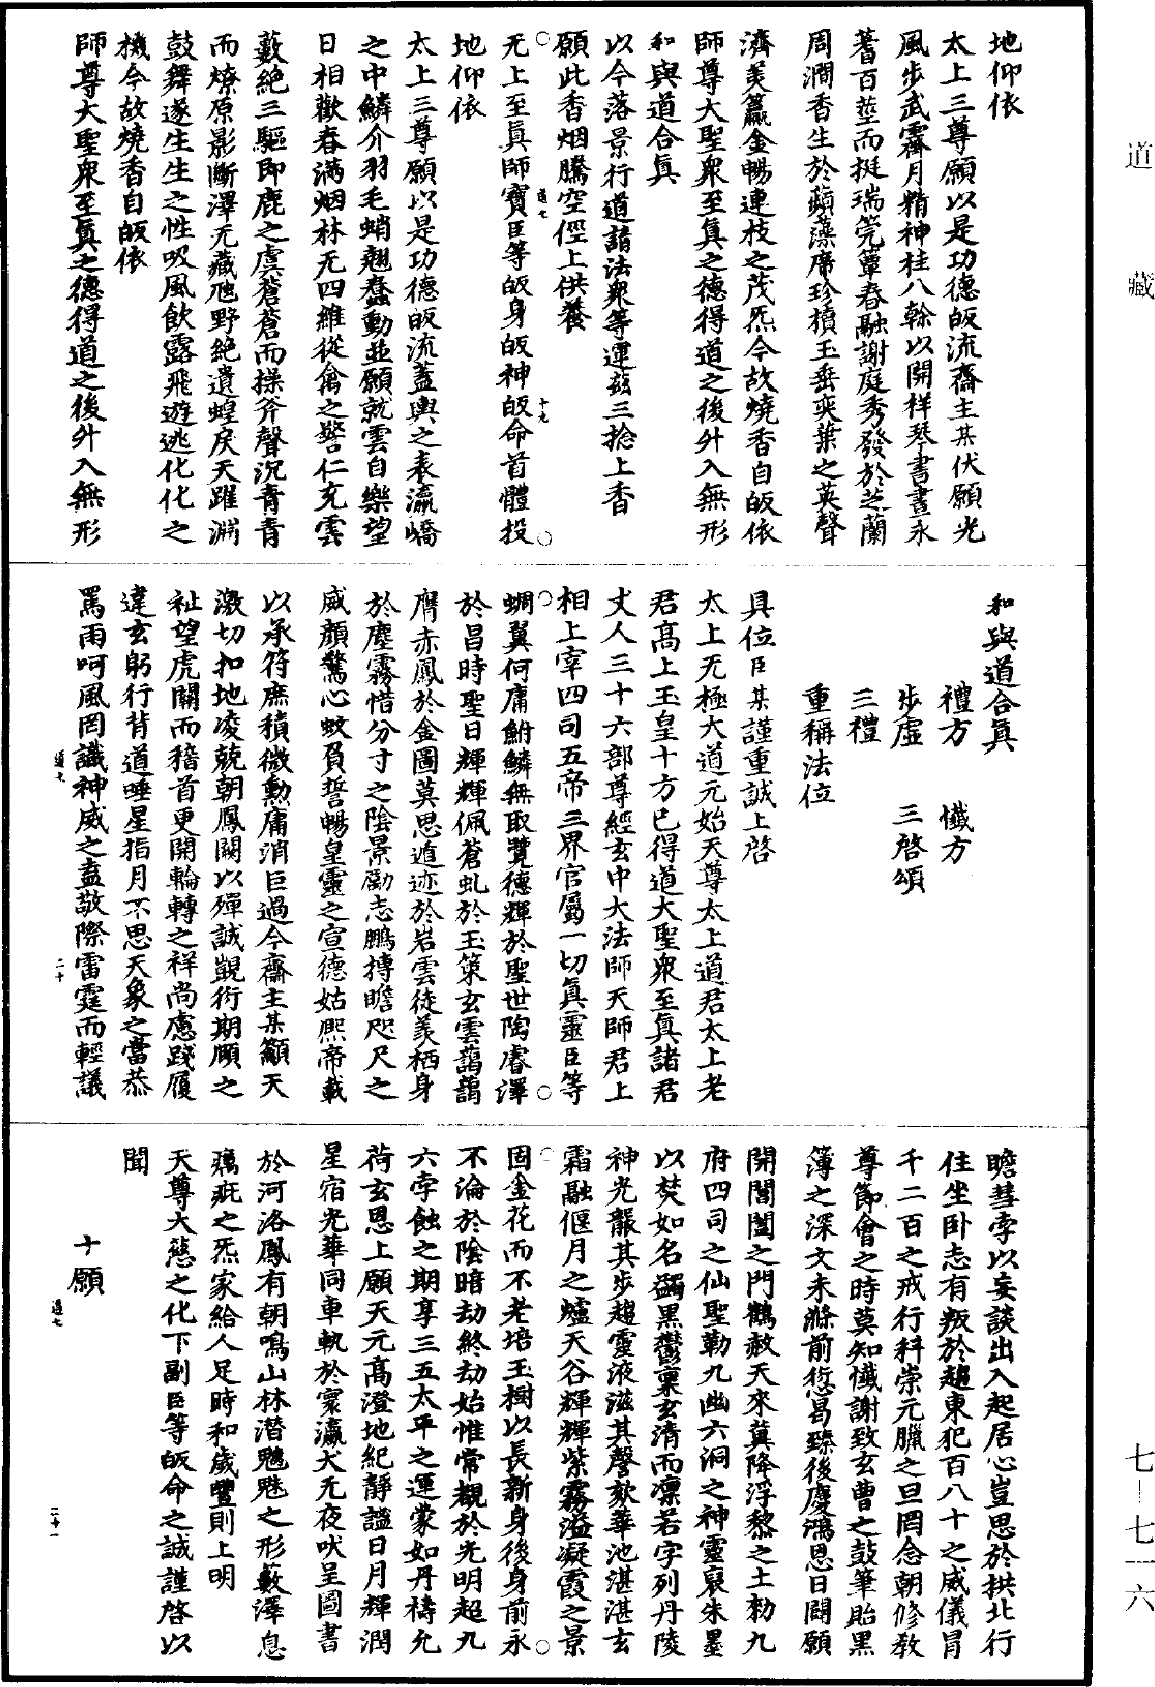 地仰依
太上三尊願以是功德皈流齋主某伏願光
風步武霽月精神桂八榦以開祥琴書晝永
蓍百莖而挺瑞筦簟春融謝庭秀發於芝蘭
周澗香生於蘋藻席珍櫝玉垂奕葉之英聲
濟美籯金暢連枝之茂炁今故燒香自皈依
師尊大聖衆至眞之德得道之後升入無形
和與道合眞
以今落景行道詣法衆等運茲三捻上香
願此香烟騰空徑上供養
无上至眞師寶臣等皈身皈神皈命首體投
地仰依
太上三尊願以是功德皈流蓋輿之表瀛嶠
之中鱗介羽毛蛸翹蠢動並願就雲自樂望
日相歡春滿烟林无四維從禽之警仁充雲
藪絶三驅即鹿之虞蒼蒼而操斧聲沉青青
而燎原影斷澤无藏虺野絶遺蝗戾天躍淵
鼓舞遂生生之性吸風飲露飛遊逃化化之
機今故燒香自皈依
師尊大聖衆至眞之德得道之後升入無形
和與道合眞
禮方　懺方
步虛　三啓頌
三禮
重稱法位
具位臣某謹重誠上啓
太上无極大道元始天尊太上道君太上老
君高上玉皇十方已得道大聖衆至眞諸君
丈人三十六部尊經玄中大法師天師君上
相上宰四司五帝三界官屬一切眞靈臣等
蜩翼何庸鮒鱗無取覽德輝於聖世陶睿澤
於昌時聖日輝輝佩蒼虬於玉策玄雲藹藹
膺赤鳳於金圖莫思逭迹於岩雲徒羨栖身
於塵霧惜分寸之陰景勵志鵬摶瞻咫尺之
威顔驚心蚊負誓暢皇靈之宣德姑熈帝載
以承符庶積微勳庸消巨過今齋主某籲天
激切扣地凌兢朝鳳闕以殫誠覬衍期頤之
祉望虎關而稽首更開輪轉之祥尚慮踐履
違玄躬行背道唾星指月不思天象之當恭
罵雨呵風罔識神威之盍敬際雷霆而輕議
瞻彗孛以妄談出入起居心豈思於拱北行
住坐卧志有叛於趨東犯百八十之威儀冒
千二百之戒行科崇元臘之旦罔念朝修教
尊節會之時莫知懺謝致玄曹之鼓筆貽黑
簿之深文未滌前愆曷臻後慶鴻恩日闢願
開閶闔之門鶴赦天來冀降浮黎之土勑九
府四司之仙聖勒九幽六洞之神靈裒朱墨
以焚如名蠲黑鬱稟玄清而凛若字列丹陵
神光龍其步趨靈液滋其謦欬華池湛湛玄
霜融偃月之爐天谷輝輝紫霧溢凝霞之景
固金花而不老培玉樹以長新身後身前永
不淪於陰暗劫終劫始惟常覩於光明超九
六孛蝕之期享三五太平之運蒙如丹禱允
荷玄恩上願天元高澄地紀靜謐日月輝潤
星宿光華同車軌於寰瀛犬无夜吠呈圖書
於河洛鳳有朝鳴山林潛魑魅之形藪澤息
癘疵之炁家給人足時和歲豐則上明
天尊大慈之化下副臣等皈命之誠謹啓以
聞
十願
道藏
七—七一六